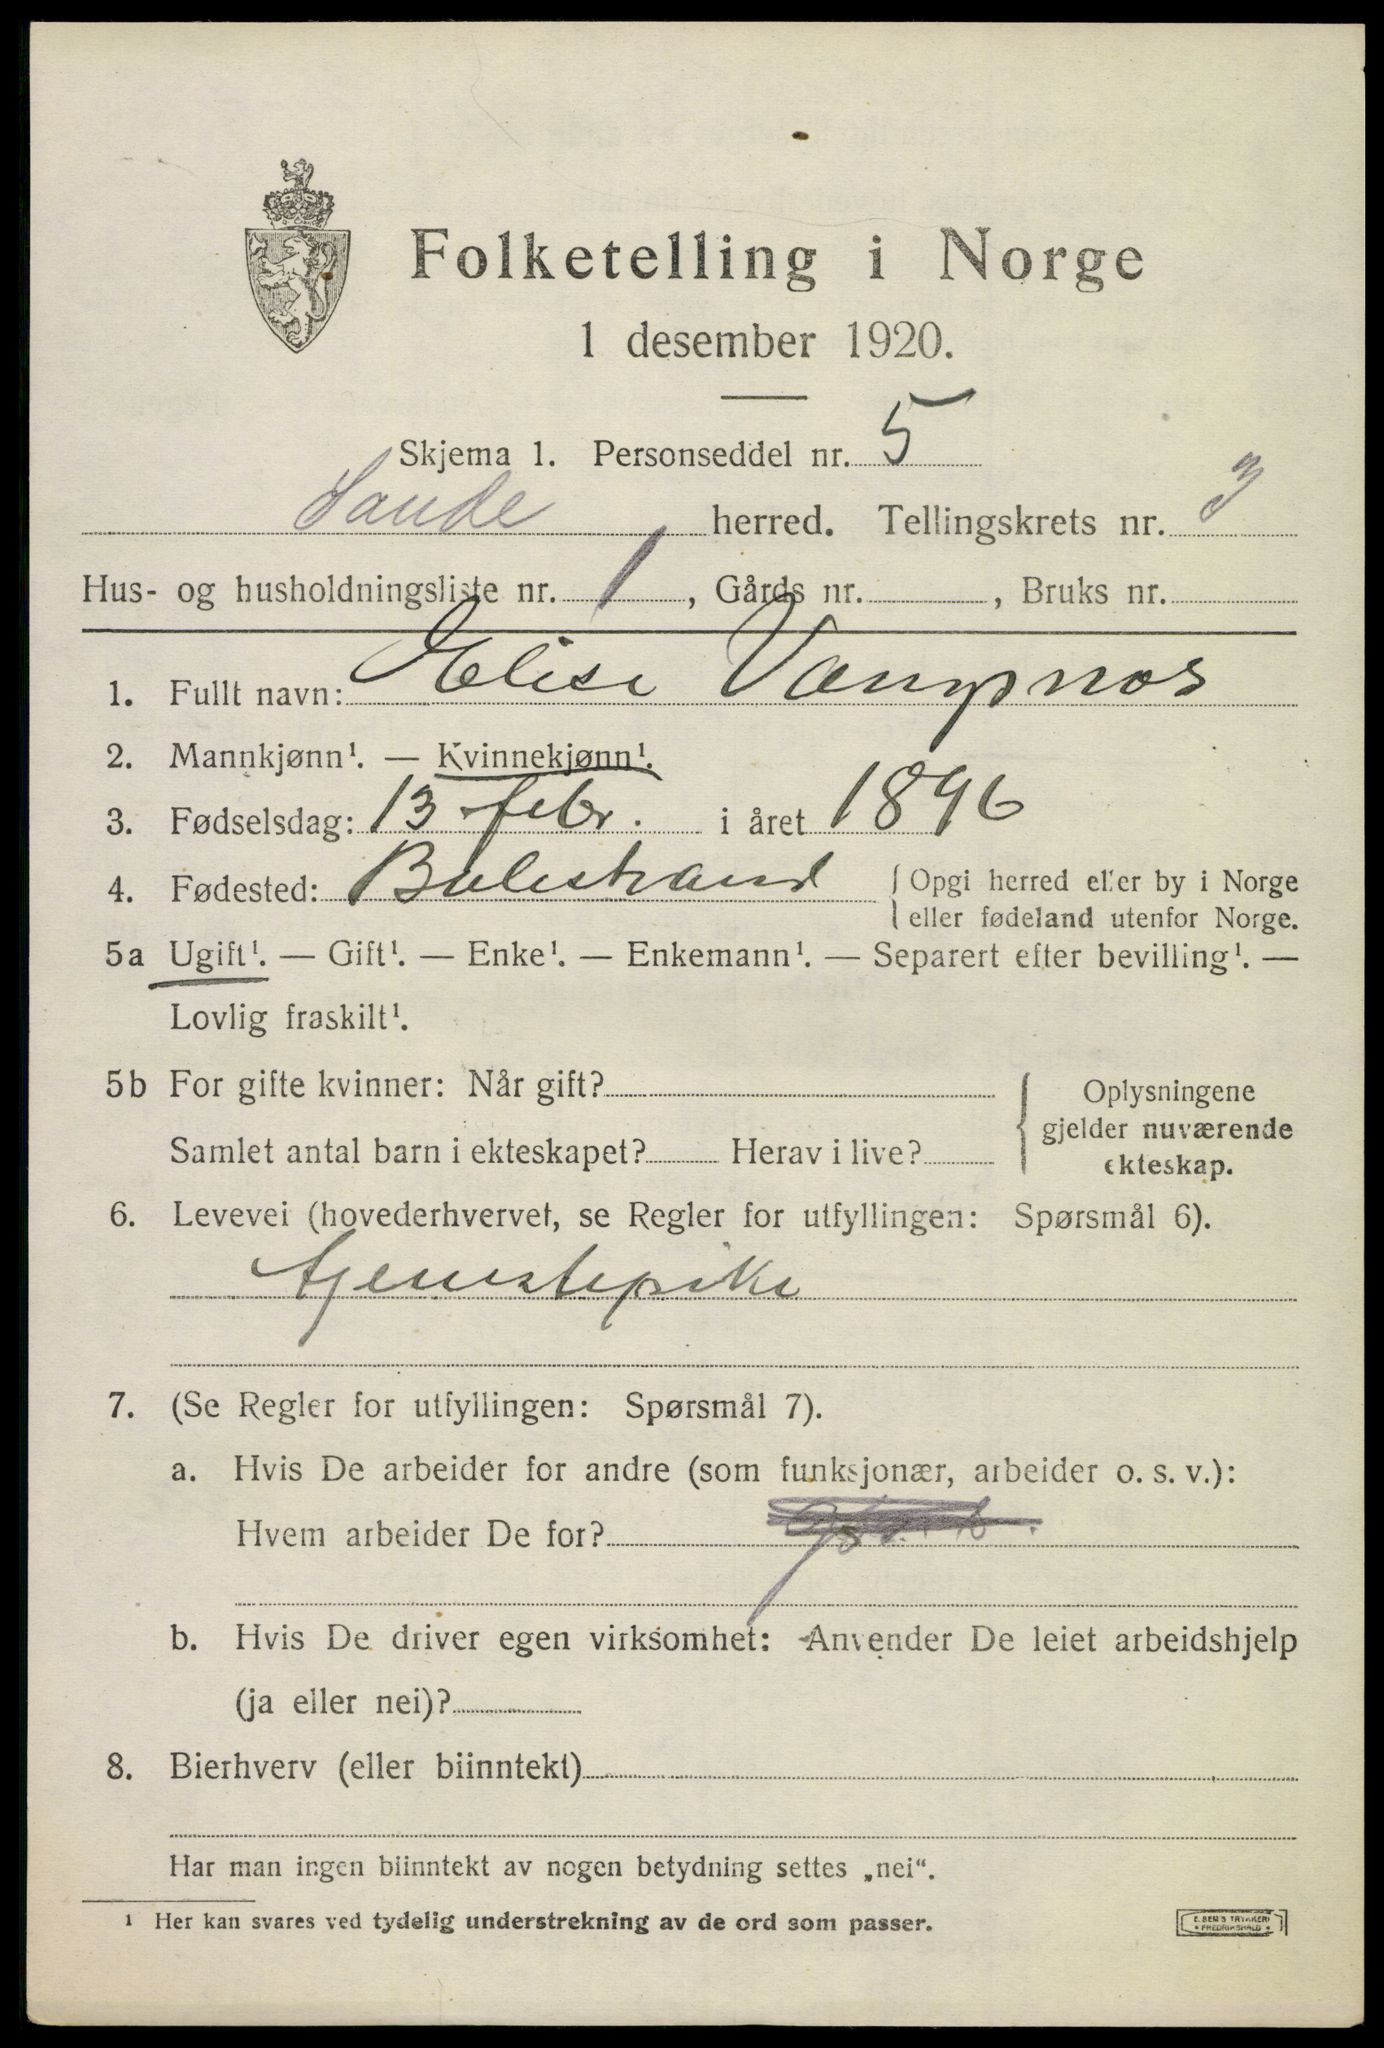 Folketelling i Norge
1 desember 1920.
Skjema 1. Personseddel nr. 5
Sande herred. Tellingskrets nr. 3
Hus- og husholdningsliste nr. 1, Gårds nr. , Bruks nr.
1. Fullt navn: Elise
2. Mannkjønn¹. — Kvinnekjønn¹.
3. Fødselsdag: 13 febr. i året 1896
4. Fødested: Balestrand {Opgi herred eller by i Norge
eller fødeland utenfor Norge.
5a Ugift¹. — Gift¹. — Enke¹. — Enkemann¹. — Separert efter bevilling¹. —
Lovlig fraskilt¹.
5b For gifte kvinner: Når gift? { Oplysningene
gjelder nuværende
Samlet antal barn i ekteskapet? Herav i live?
ekteskap.
6. Levevei (hovederhvervet, se Regler for utfyllingen: Spørsmål 6).
Tjenestepike
7. (Se Regler for utfyllingen: Spørsmål 7).
a. Hvis De arbeider for andre (som funksjonær, arbeider o. s. v.):
Hvem arbeider De for?
b. Hvis De driver egen virksomhet: Anvender De leiet arbeidshjelp
(ja eller nei)?
8. Bierhverv (eller biinntekt)
Har man ingen biinntekt av nogen betydning settes „nei“.
¹ Her kan svares ved tydelig understrekning av de ord som passer.
E. SEM'S TRYKKERI
FREDRIKSHALD